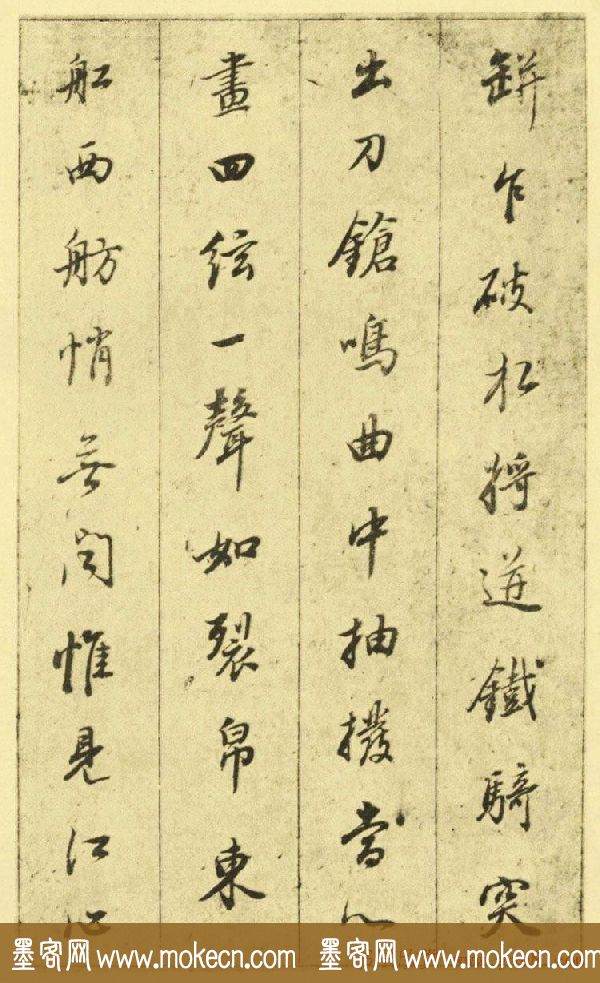 缾乍破水漿迸鐵騎突
出刀鎗鳴曲中抽撥當心
畫四絃一聲如裂帛東
舡西舫悄無聞惟見江心
墨客网 www.mokecn.com 墨客网 www.mokecn.com